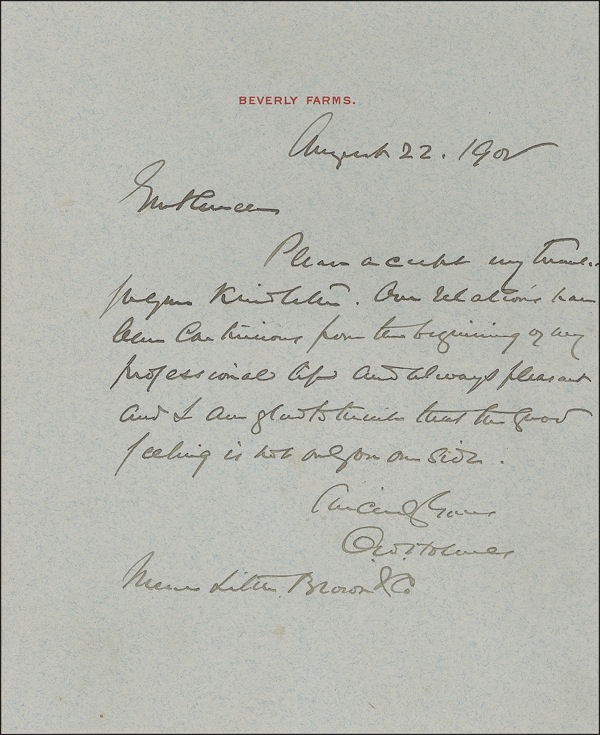 BEVERLY FARMS.
August 22. 1902
Gentlemen
Please accept my thanks
for your kind letter. Our relations have
been continuous from the beginning of my
professional life and always pleasant
and I am glad to think that the good
feeling is not only on one side.
Sincerely Yours
O. W. Holmes
Messrs Little, Brown & Co